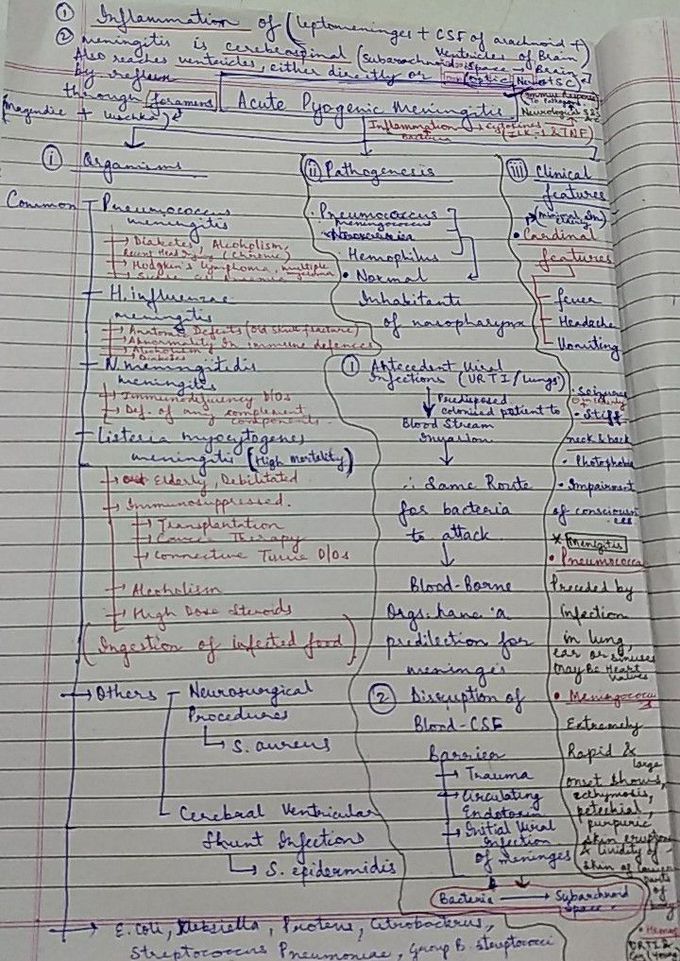 ① Inflammation of (leptomeninges + CSF of arachnoid +
② Meningitis is cerebrospinal (subarachnoid space of Brain,
Ventricles of Brain)
Also reaches ventricles, either directly or
optic Nerves
by reflux
through foramens
Magendie + Luschka
Acute Pyogenic Meningitis
Immune Response
To Pathogen
Neurological
Inflammation
bacteria
cytokines
& TNF
① Organisms
Common
Pneumococcus
meningitis
→ Diabetes, Alcoholism,
Recent Head Injury (Chronic)
→ Hodgkin's lymphoma, multiple
H. influenzae
meningitis
→ Anatomic Defects (Old Skull fracture)
→ Abnormality in immune defences
→ Alcoholism
Diabetes
N. meningitidis
meningitis
→ Immunodeficiency D/Os
→ Def. of any complement
components.
Listeria myocytogenes
meningitis (High mortality)
→ Elderly, Debilitated
→ Immunosuppressed.
→ Transplantation
→ Cancer Therapy
→ Connective Tissue D/Os
→ Alcoholism
→ High Dose Steroids
(Ingestion of infected food)
→ Others
Neurosurgical
Procedures
→ S. aureus
Cerebral Ventricular
Shunt Infections
→ S. epidermidis
→ E. Coli, Klebsiella, Proteus, Citrobacterus,
Streptococcus Pneumoniae, Group B. streptococci
② Pathogenesis
• Pneumococcus
Meningococcus
Hemophilus
• Normal
Inhabitants
of nasopharynx
① Antecedent Viral
Infections (URTI/Lungs)
Predisposed
colonised patient to
Blood Stream
Invasion
∴ Same Route
for bacteria
to attack
Blood-Borne
Orgs. have a
predilection for
meninges
② Disruption of
Blood-CSF
Barrier
→ Trauma
→ Circulating
Endotoxin
→ Initial Viral
Infection
of meninges
Bacteria → Subarchnoid
Space
③ Clinical
features
(minimal in
elderly)
• Cardinal
features
fever
Headache
Vomiting
• Seizures
• Stiff
neck & back
• Photophobia
• Impairment
of consciousn
ess
* Menigitis
• Pneumococca
Preceded by
infection
in lung,
ear or sinuses
May Be Heart
Valves
• Meningococcus
Extremely
Rapid &
large
onset shows,
ecthymosis,
petechial
purpuric
skin eruptions
& lividity of
skin of lower
parts
of
body